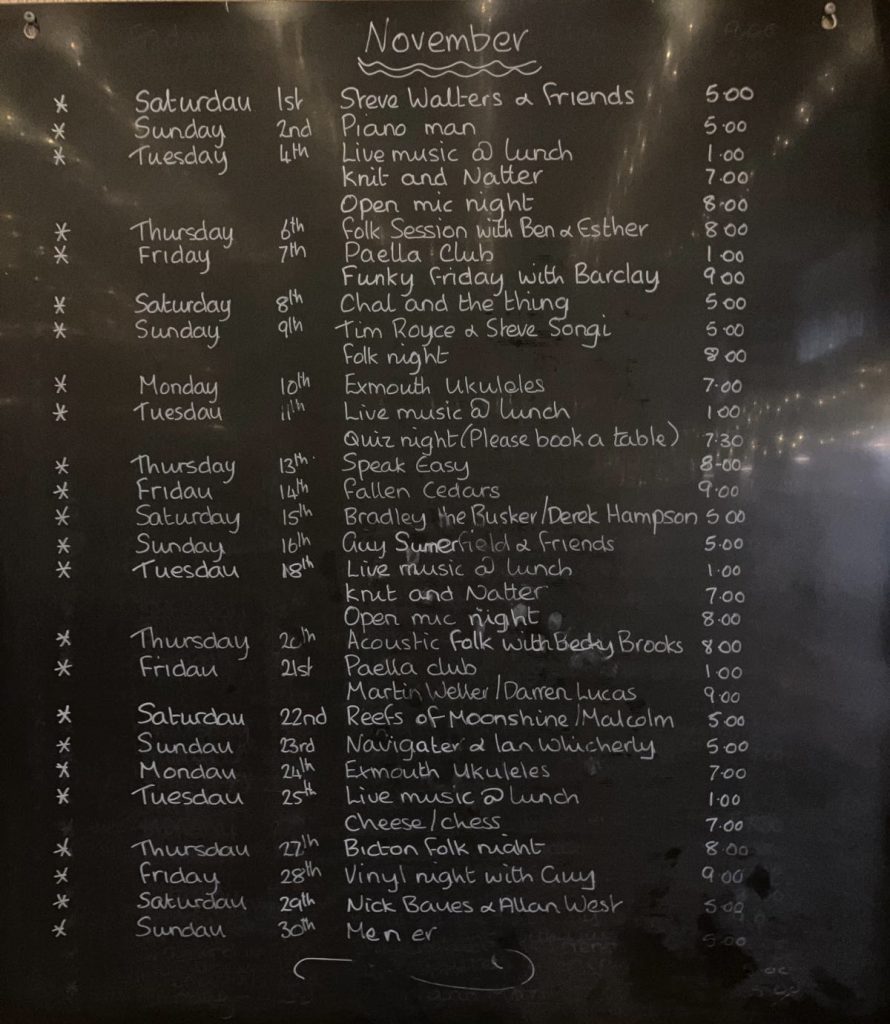 November
* Saturday 1st Steve Walters & Friends 5.00
* Sunday 2nd Piano man 5.00
* Tuesday 4th Live music @ lunch 1.00
Knit and Natter 7.00
Open mic night 8.00
* Thursday 6th Folk Session with Ben & Esther 8.00
* Friday 7th Paella Club 1.00
Funky Friday with Barclay 9.00
* Saturday 8th Chal and the thing 5.00
* Sunday 9th Tim Royce & Steve Songi 5.00
Folk night 8.00
* Monday 10th Exmouth Ukuleles 7.00
* Tuesday 11th Live music @ lunch 1.00
Quiz night (Please book a table) 7.30
* Thursday 13th Speak Easy 8.00
* Friday 14th Fallen Cedars 9.00
* Saturday 15th Bradley the Busker/Derek Hampson 5.00
* Sunday 16th Guy Sumerfield & Friends 5.00
* Tuesday 18th Live music @ lunch 1.00
Knit and Natter 7.00
Open mic night 8.00
* Thursday 20th Acoustic Folk with Becky Brooks 8.00
* Friday 21st Paella club 1.00
Martin Weller/Darren Lucas 9.00
* Saturday 22nd Reefs of Moonshine/Malcolm 5.00
* Sunday 23rd Navigater & Ian 5.00
* Monday 24th Exmouth Ukuleles 7.00
* Tuesday 25th Live music @ lunch 1.00
Cheese/chess 7.00
* Thursday 27th Bicton Folk night 8.00
* Friday 28th Vinyl night with Guy 9.00
* Saturday 29th Nick Bayes & Allan West 5.00
* Sunday 30th 5.00